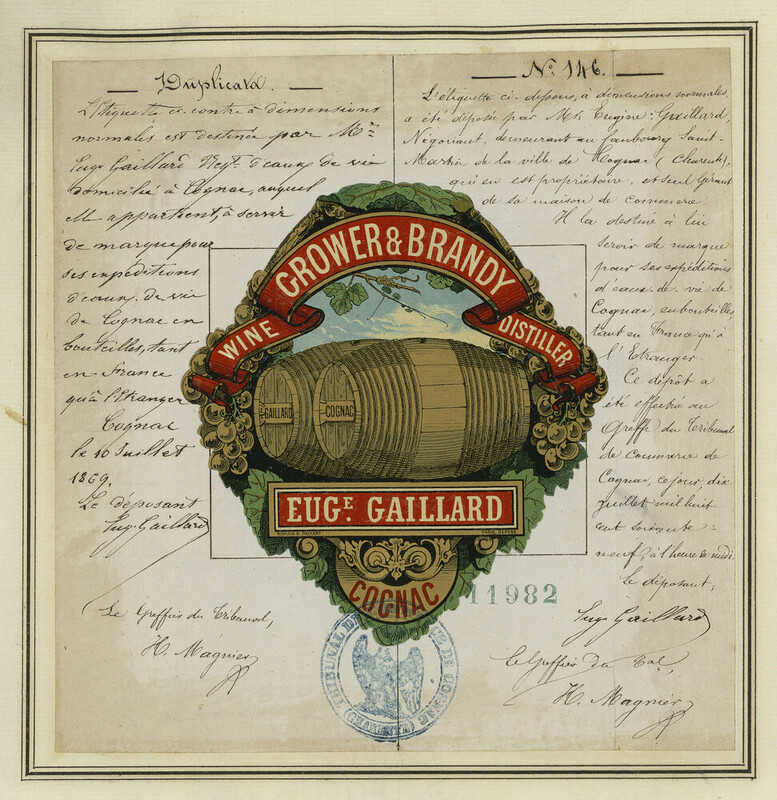 Duplicata
L'Etiquette ci-contre à dimensions
normales est destinée par Mr
Eugne Gaillard Negt. d'eaux de vie
domicilié à Cognac, auquel
elle appartient, à servir
de marque pour
ses expéditions
d'eaux de vie
de Cognac en
bouteilles, tant
en France
qu'à l'Etranger
Cognac
le 10 Juillet
1869.
Le déposant
Eug. Gaillard
Le Greffier du Tribunal,
H. Magnier
No. 146.
L'étiquette ci-dessus, à dimensions normales,
a été déposée par Mr. Eugène Gaillard,
Négociant, demeurant au faubourg Saint-
Martin de la ville de Cognac (Charente),
qui en est propriétaire, et seul Gérant
de sa maison de commerce.
Il la destine à lui
servir de marque
pour ses expéditions
d'eaux de vie de
Cognac, en bouteilles,
tant en France qu'à
l'Etranger.
Ce dépôt a
été effectué au
Greffe du Tribunal
de Commerce de
Cognac, ce jour dix
juillet mil huit
cent soixante-
neuf, à l'heure de midi.
Le déposant,
Eug. Gaillard
Le Greffier du Tal,
H. Magnier
GROWER & BRANDY
WINE
DISTILLER
E. GAILLARD
COGNAC
EUGE. GAILLARD
COGNAC
11982
TRIBUNAL DE
CE DE COGNAC (CHARENTE)